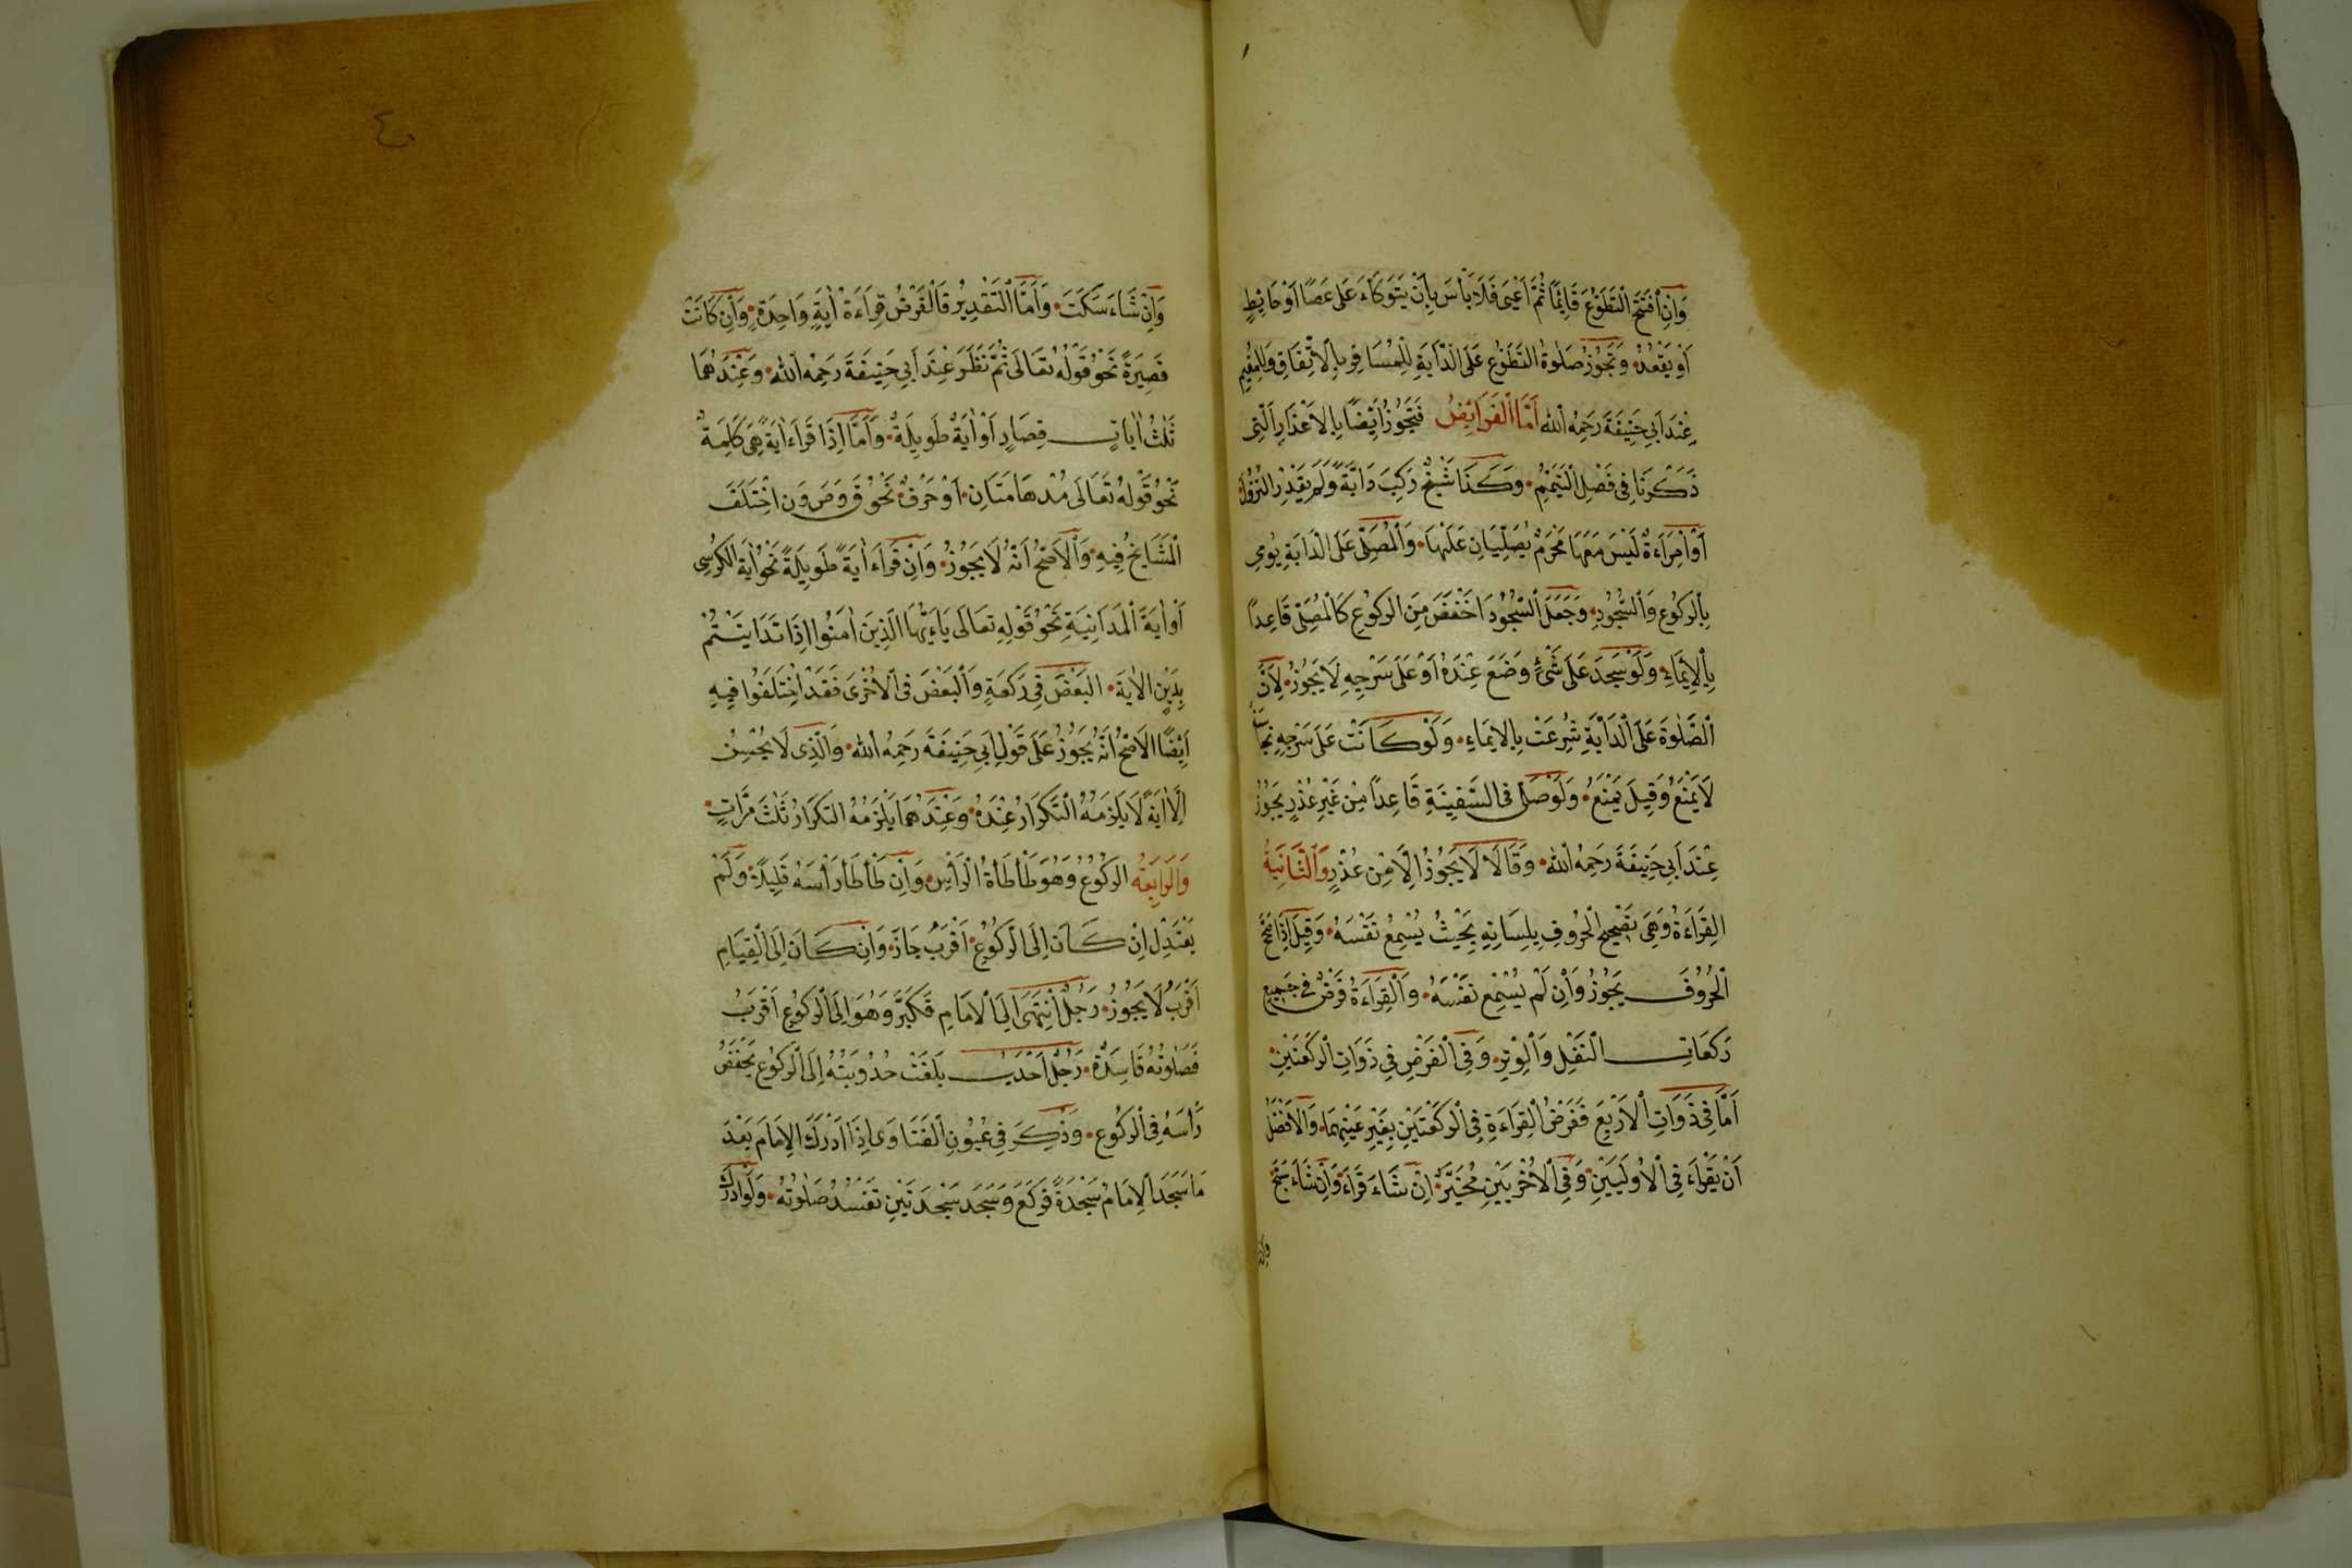 وَاِنِ افْتَتَحَ التَّطَوُّعَ قَائِمًا ثُمَّ اَعْيَى فَلَا بَأْسَ بِاَنْ يَتَوَكَّاءَ عَلَى عَصًا اَوْ حَائِطٍ
اَوْ يَقْعُدُ وَتَجُوزُ صَلٰوةُ التَّطَوُّعِ عَلَى الدَّابَةِ لِلْمُسَافِرِ بِالْاِتِّفَاقِ وَلِلْمُقِيمِ
عِنْدَ اَبِي حَنِيفَةَ رَحِمَهُ اللّٰه اَمَّا الْفَرَايِضُ فَتَجُوزُ اَيْضًا بِالْاَعْذَارِ الَّتِى
ذَكَرْنَا فِى فَصْلِ التَّيَمُّمِ وَكَذَا شَيْخٌ رَكِبَ دَابَّةً وَلَمْ يَقْدِرِ النُّزُولَ
اَوْ اِمْرَاَةٌ لَيْسَ مَعَهَا مَحْرَمٌ يُصَلِّيَانِ عَلَيْهَا وَالْمُصَلِّى عَلَى الدَّابَةِ يُومِى
بِالرُّكُوعِ وَالسُّجُودِ وَجَعَلَ السُّجُودَ اَخْفَضَ مِنَ الرُّكُوعِ كَالْمُصَلِّى قَاعِدًا
بِالْاِيْمَاءِ وَلَوْ سَجَدَ عَلَى شَىْءٍ وَضَعَ عِنْدَهُ اَوْ عَلَى سَرْجِهِ لَا يَجُوزُ لِاَنَّ
الصَّلٰوةَ عَلَى الدَّابَةِ شُرِعَتْ بِالْاِيمَاءِ وَلَوْ كَانَتْ عَلَى سَرْجِهِ نَجَاسَةٌ
لَا يَمْنَعُ وَقِيلَ يَمْنَعُ وَلَوْ صَلَّى فِى السَّفِينَةِ قَاعِدًا مِنْ غَيْرِ عُذْرٍ يَجُوزُ
عِنْدَ اَبِي حَنِيفَةَ رَحِمَهُ اللّٰه وَقَالَا لَا يَجُوزُ اِلَّا مِنْ عُذْرٍ وَالثَّانِيَةُ
الْقِرَاءَةُ وَهِىَ تَصْحِيحُ الْحُرُوفِ بِلِسَانِهِ بِحَيْثُ يُسْمِعُ نَفْسَهُ وَقِيلَ اِذَا صَحَّحَ
الْحُرُوفَ يَجُوزُ وَاِنْ لَمْ يُسْمِعْ نَفْسَهُ وَالْقِرَاءَةُ فَرْضٌ فِى جَمِيعِ
رَكَعَاتِ النَّفْلِ وَالْوِتْرِ وَفِى الْفَرْضِ فِى ذَوَاتِ الرَّكْعَتَيْنِ
اَمَّا فِى ذَوَاتِ الْاَرْبَعِ فَفَرْضُ الْقِرَاءَةِ فِى الرَّكْعَتَيْنِ بِغَيْرِ عَيْنِهِمَا وَالْاَفْضَلُ
اَنْ يَقْرَاءَ فِى الْاُولَيَيْنِ وَفِى الْاُخْرَيَيْنِ مُخَيَّرٌ اِنْ شَاءَ قَرَاءَ وَاِنْ شَاءَ سَبَّحَ
وان
٤
وَاِنْ شَاءَ سَكَتَ وَاَمَّا التَّقْدِيرُ فَالْفَرْضُ قِرَاءَةُ اٰيَةٍ وَاحِدَةٍ وَاِنْ كَانَتْ
قَصِيرَةً نَحْوُ قَوْلُهُ تَعَالَى ثُمَّ نَظَرَ عِنْدَ اَبِي حَنِيفَةَ رَحِمَهُ اللّٰه وَعِنْدَهُمَا
ثَلٰثُ اٰيَاتٍ قِصَارٍ اَوْ اٰيَةٌ طَوِيلَةٌ وَاَمَّا اِذَا قَرَاءَ اٰيَةً هِىَ كَلِمَةٌ
نَحْوُ قَوْلِهُ تَعَالَى مُدْهَامَّتَانِ اَوْ حَرْفٌ نَحْوُ ق وَ ص وَ ن اخْتَلَفَ
الْمَشَايِخُ فِيهِ وَالْاَصَحُّ اَنَّهُ لَا يَجُوزُ وَاِنْ قَرَاءَ اٰيَةً طَوِيلَةً نَحْوُ اٰيَةِ الْكُرْسِى
اَوْ اٰيَةَ الْمَدَايِنِيَةِ نَحْوُ قَوْلِهِ تَعَالَى يَاءَيُّهَا الَّذِينَ اٰمَنُوا اِذَا تَدَايَنْتُمْ
بِدَيْنٍ الْاٰيَةَ الْبَعْضَ فِى رَكْعَةٍ وَالْبَعْضَ فِى الْاُخْرَى فَقَدْ اخْتَلَفُوا فِيهِ
اَيْضًا الْاَصَحُّ اَنَّهُ يَجُوزُ عَلَى قَوْلِ اَبِي حَنِيفَةَ رَحِمَهُ اللّٰه وَالَّذِى لَا يُحْسِنُ
اِلَّا اٰيَةً لَا يَلْزَمُهُ التَّكْرَارُ عِنْدَهُ وَعِنْدَهُمَا يَلْزَمُهُ التَّكْرَارُ ثَلٰثَ مَرَّاتٍ
وَالرَّابِعَةُ الرُّكُوعُ وَهُوَ طَأْطَأَةُ الرَّأْسِ وَاِنْ طَأْطَأَ رَأْسَهُ قَلِيلًا وَلَمْ
يَعْتَدِلْ اِنْ كَانَ اِلَى الرُّكُوعِ اَقْرَبُ جَازَ وَاِنْ كَانَ اِلَى الْقِيَامِ
اَقْرَبُ لَا يَجُوزُ رَجُلٌ اِنْتَهَى اِلَى الْاِمَامِ فَكَبَّرَ وَهُوَ اِلَى الرُّكُوعِ اَقْرَبُ
فَصَلٰوتُهُ فَاسِدَةٌ رَجُلٌ اَحْدَبُ بَلَغَتْ حُدُوبَتُهُ اِلَى الرُّكُوعِ يَخْفَضُ
رَأْسَهُ فِى الرُّكُوعِ وَذُكِرَ فِى عُيُونِ الْفَتَاوَى اِذَا اَدْرَكَ الْاِمَامَ بَعْدَ
مَا سَجَدَ الْاِمَامُ سَجْدَةً فَرَكَعَ وَسَجَدَ سَجْدَتَيْنِ تَفْسُدُ صَلٰوتُهُ وَلَوْ اَدْرَكَ